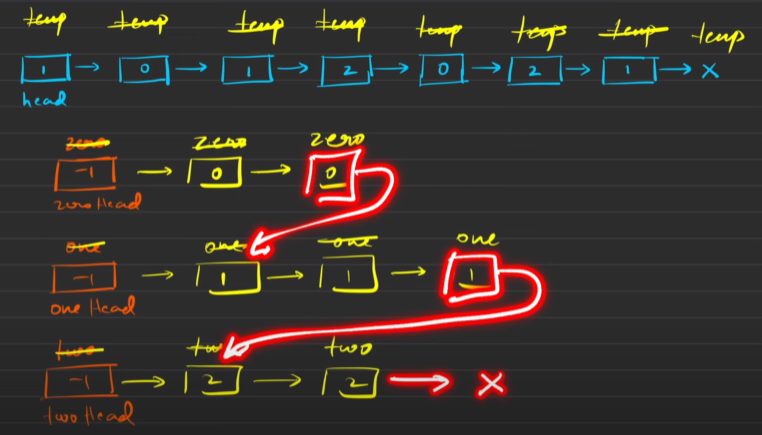 temp temp temp temp temp temp temp temp
1 0 1 2 0 2 1 X
head
zero zero zero
-1 0 0
zero Head
one one one one
-1 1 1 1
one Head
two two two
-1 2 2 X
two Head